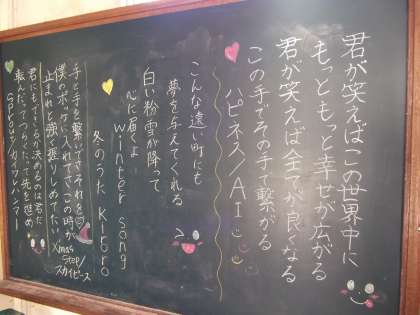 君が笑えばこの世界中に
もっともっと幸せが広がる
君が笑えば全てが良くなる
この手でその手で繋がる
ハピネス/AI
こんな遠い町にも
夢を与えてくれる
白い粉雪が降って
心に届くよ
winter song
冬のうた Kiroro
手と手を繋いでそれを
僕のポッケに入れてさこの時が
止まれと強く握りしめてたい
Xmas
Step/
スカイピース
君にもできるが決めるのは君だ
転んだってつらくたって先を進め
sprout/カワラハンマー